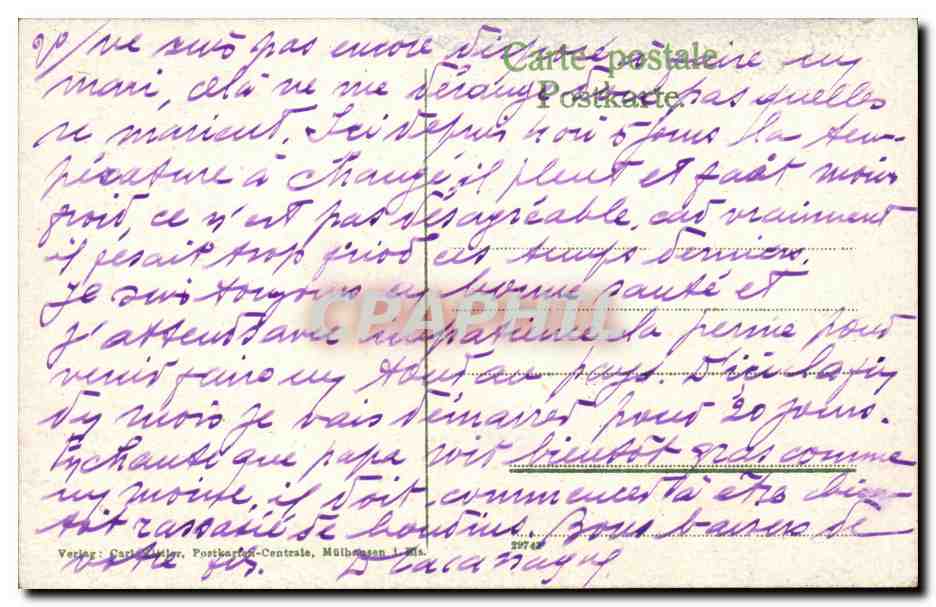 2°/ne suis pas encore décidé à faire un
Carte postale
mari, celà ne me dérange pas quelles
Postkarte.
se marient. Ici depuis 4 où 5 jours la tem-
pérature à changé il pleut et fait moins
froid, ce n'est pas désagréable, car vraiment
il fesait trop froid ces temps derniers.
Je suis toujours en bonne santé et
CPAPHIL
j'attend avec impatience la perme pour
venir faire un tour au pays. D'ici la fin
du mois je vais démarrer pour 20 jours.
Enchanté que papa soit bientôt gras comme
un moine, il doit commencer à être bien-
tôt rassasié de boudins. Bons baisers de
Verlag: Carl Postkarten-Centrale, Mülhausen i. Els.
29742
votre fils.